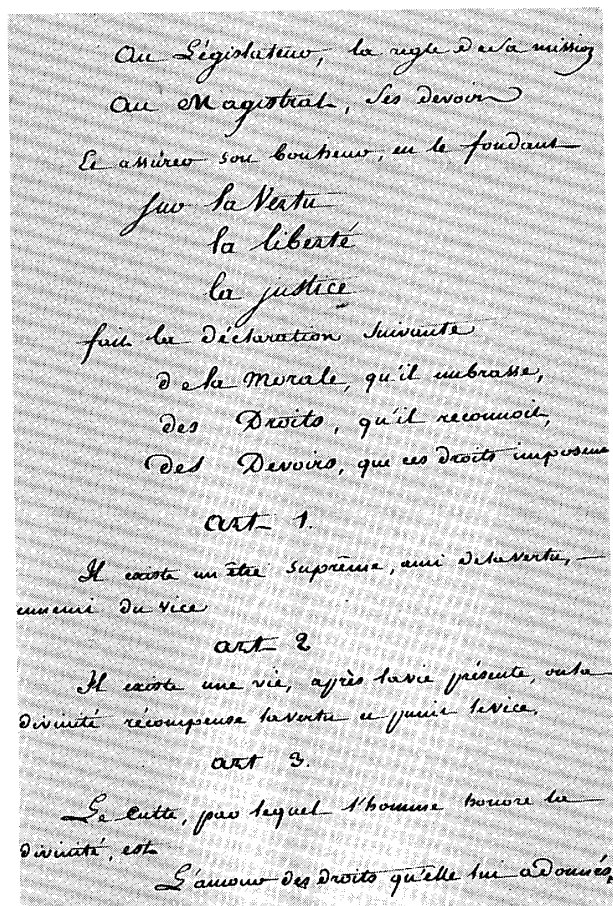 Au Législateur, la regle de sa mission
Au Magistrat, Ses devoirs
Et assurer son bonheur, en le fondant
sur la Vertu
la liberté
la justice
fait la déclaration suivante
de la Morale, qu'il embrasse,
des Droits, qu'il reconnoit,
des Devoirs, que ces droits imposent
art 1.
Il existe un être suprême, ami de la vertu,
ennemi du vice
art 2
Il existe une vie, après la vie présente, ou la
divinité récompense la vertu et punit le vice.
art 3.
Le Culte, par lequel l'homme honore la
divinité, est
L'amour des droits qu'elle lui a donnés,